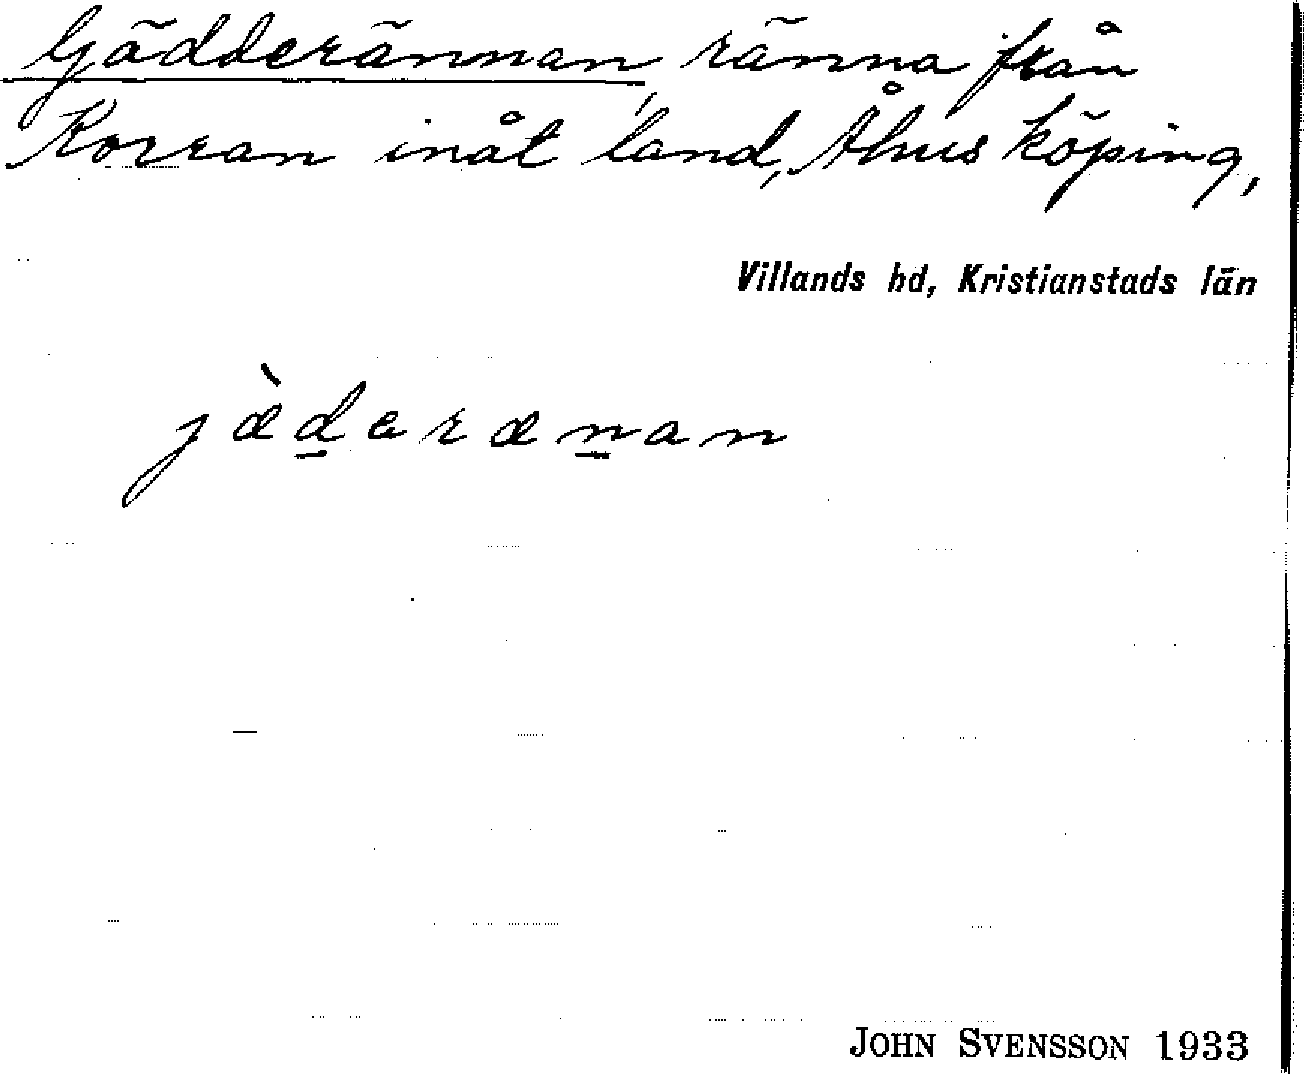 Gädderännan, ränna från
Korran inåt land, Åhus köping,
Villands hd, Kristianstads län
jæ̀d̲aræn̲an
JOHN SVENSSON 1933